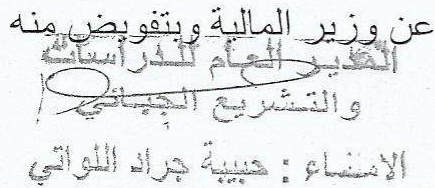 عن وزير المالية وبتفويض منه
المدير العام للدراسات
والتشريع الجبائي
الامضاء : حبيبة جراد اللواتي